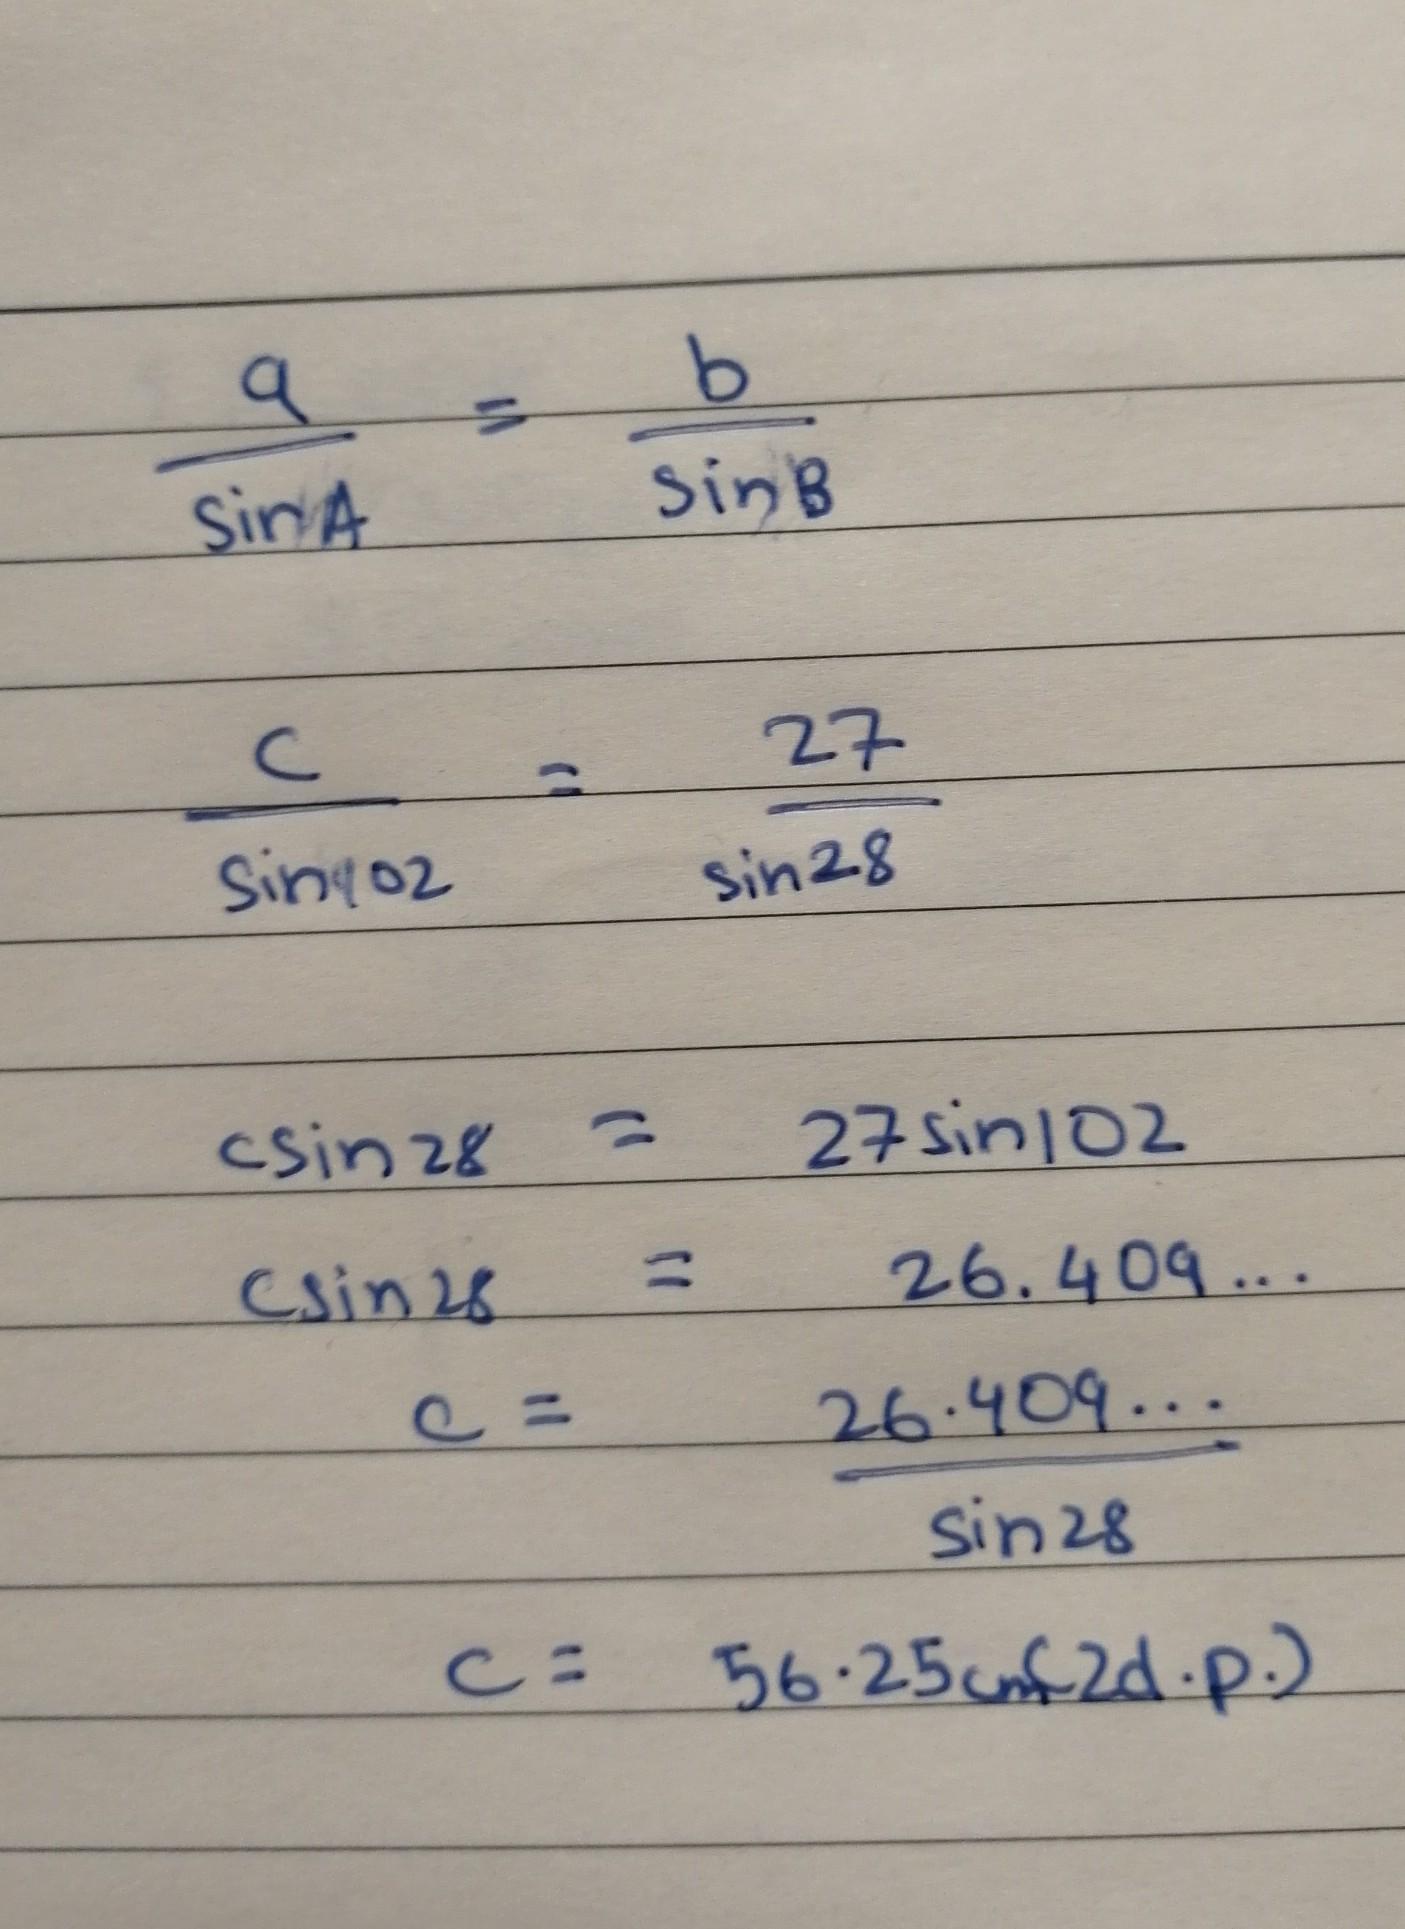 a/sinA = b/sinB
c/sin102 = 27/sin28
csin28 = 27sin102
csin28 = 26.409...
c = 26.409.../sin28
c = 56.25cm(2d.p.)